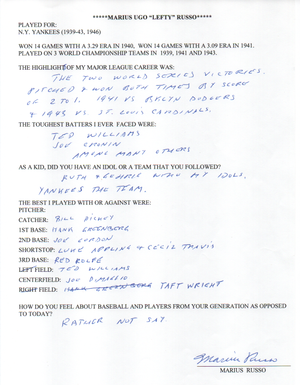 *****MARIUS UGO "LEFTY" RUSSO*****
PLAYED FOR:
N.Y. YANKEES (1939-43, 1946)
WON 14 GAMES WITH A 3.29 ERA IN 1940, WON 14 GAMES WITH A 3.09 ERA IN 1941.
PLAYED ON 3 WORLD CHAMPIONSHIP TEAMS IN 1939, 1941 AND 1943.
THE HIGHLIGHT OF MY MAJOR LEAGUE CAREER WAS:
THE TWO WORLD SERIES VICTORIES.
PITCHED & WON BOTH TIMES BY SCORE
OF 2 TO 1. 1941 VS BKLYN DODGERS
& 1943 VS ST. LOUIS CARDINALS.
THE TOUGHEST BATTERS I EVER FACED WERE:
TED WILLIAMS
JOE CRONIN
AMONG MANY OTHERS
AS A KID, DID YOU HAVE AN IDOL OR A TEAM THAT YOU FOLLOWED?
RUTH & GEHRIG WERE MY IDOLS.
YANKEES THE TEAM.
THE BEST I PLAYED WITH OR AGAINST WERE:
PITCHER:
CATCHER: BILL DICKEY
1ST BASE: HANK GREENBERG
2ND BASE: JOE GORDON
SHORTSTOP: LUKE APPLING & CECIL TRAVIS
3RD BASE: RED ROLFE
LEFT FIELD: TED WILLIAMS
CENTERFIELD: JOE DIMAGGIO
RIGHT FIELD: HANK GREENBERG TAFT WRIGHT
HOW DO YOU FEEL ABOUT BASEBALL AND PLAYERS FROM YOUR GENERATION AS OPPOSED
TO TODAY?
RATHER NOT SAY
Marius Russo
MARIUS RUSSO